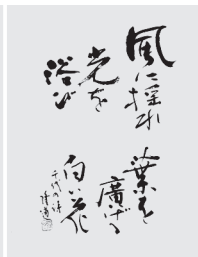 風に揺れ
光を
浴び
葉を
廣げる
白い花